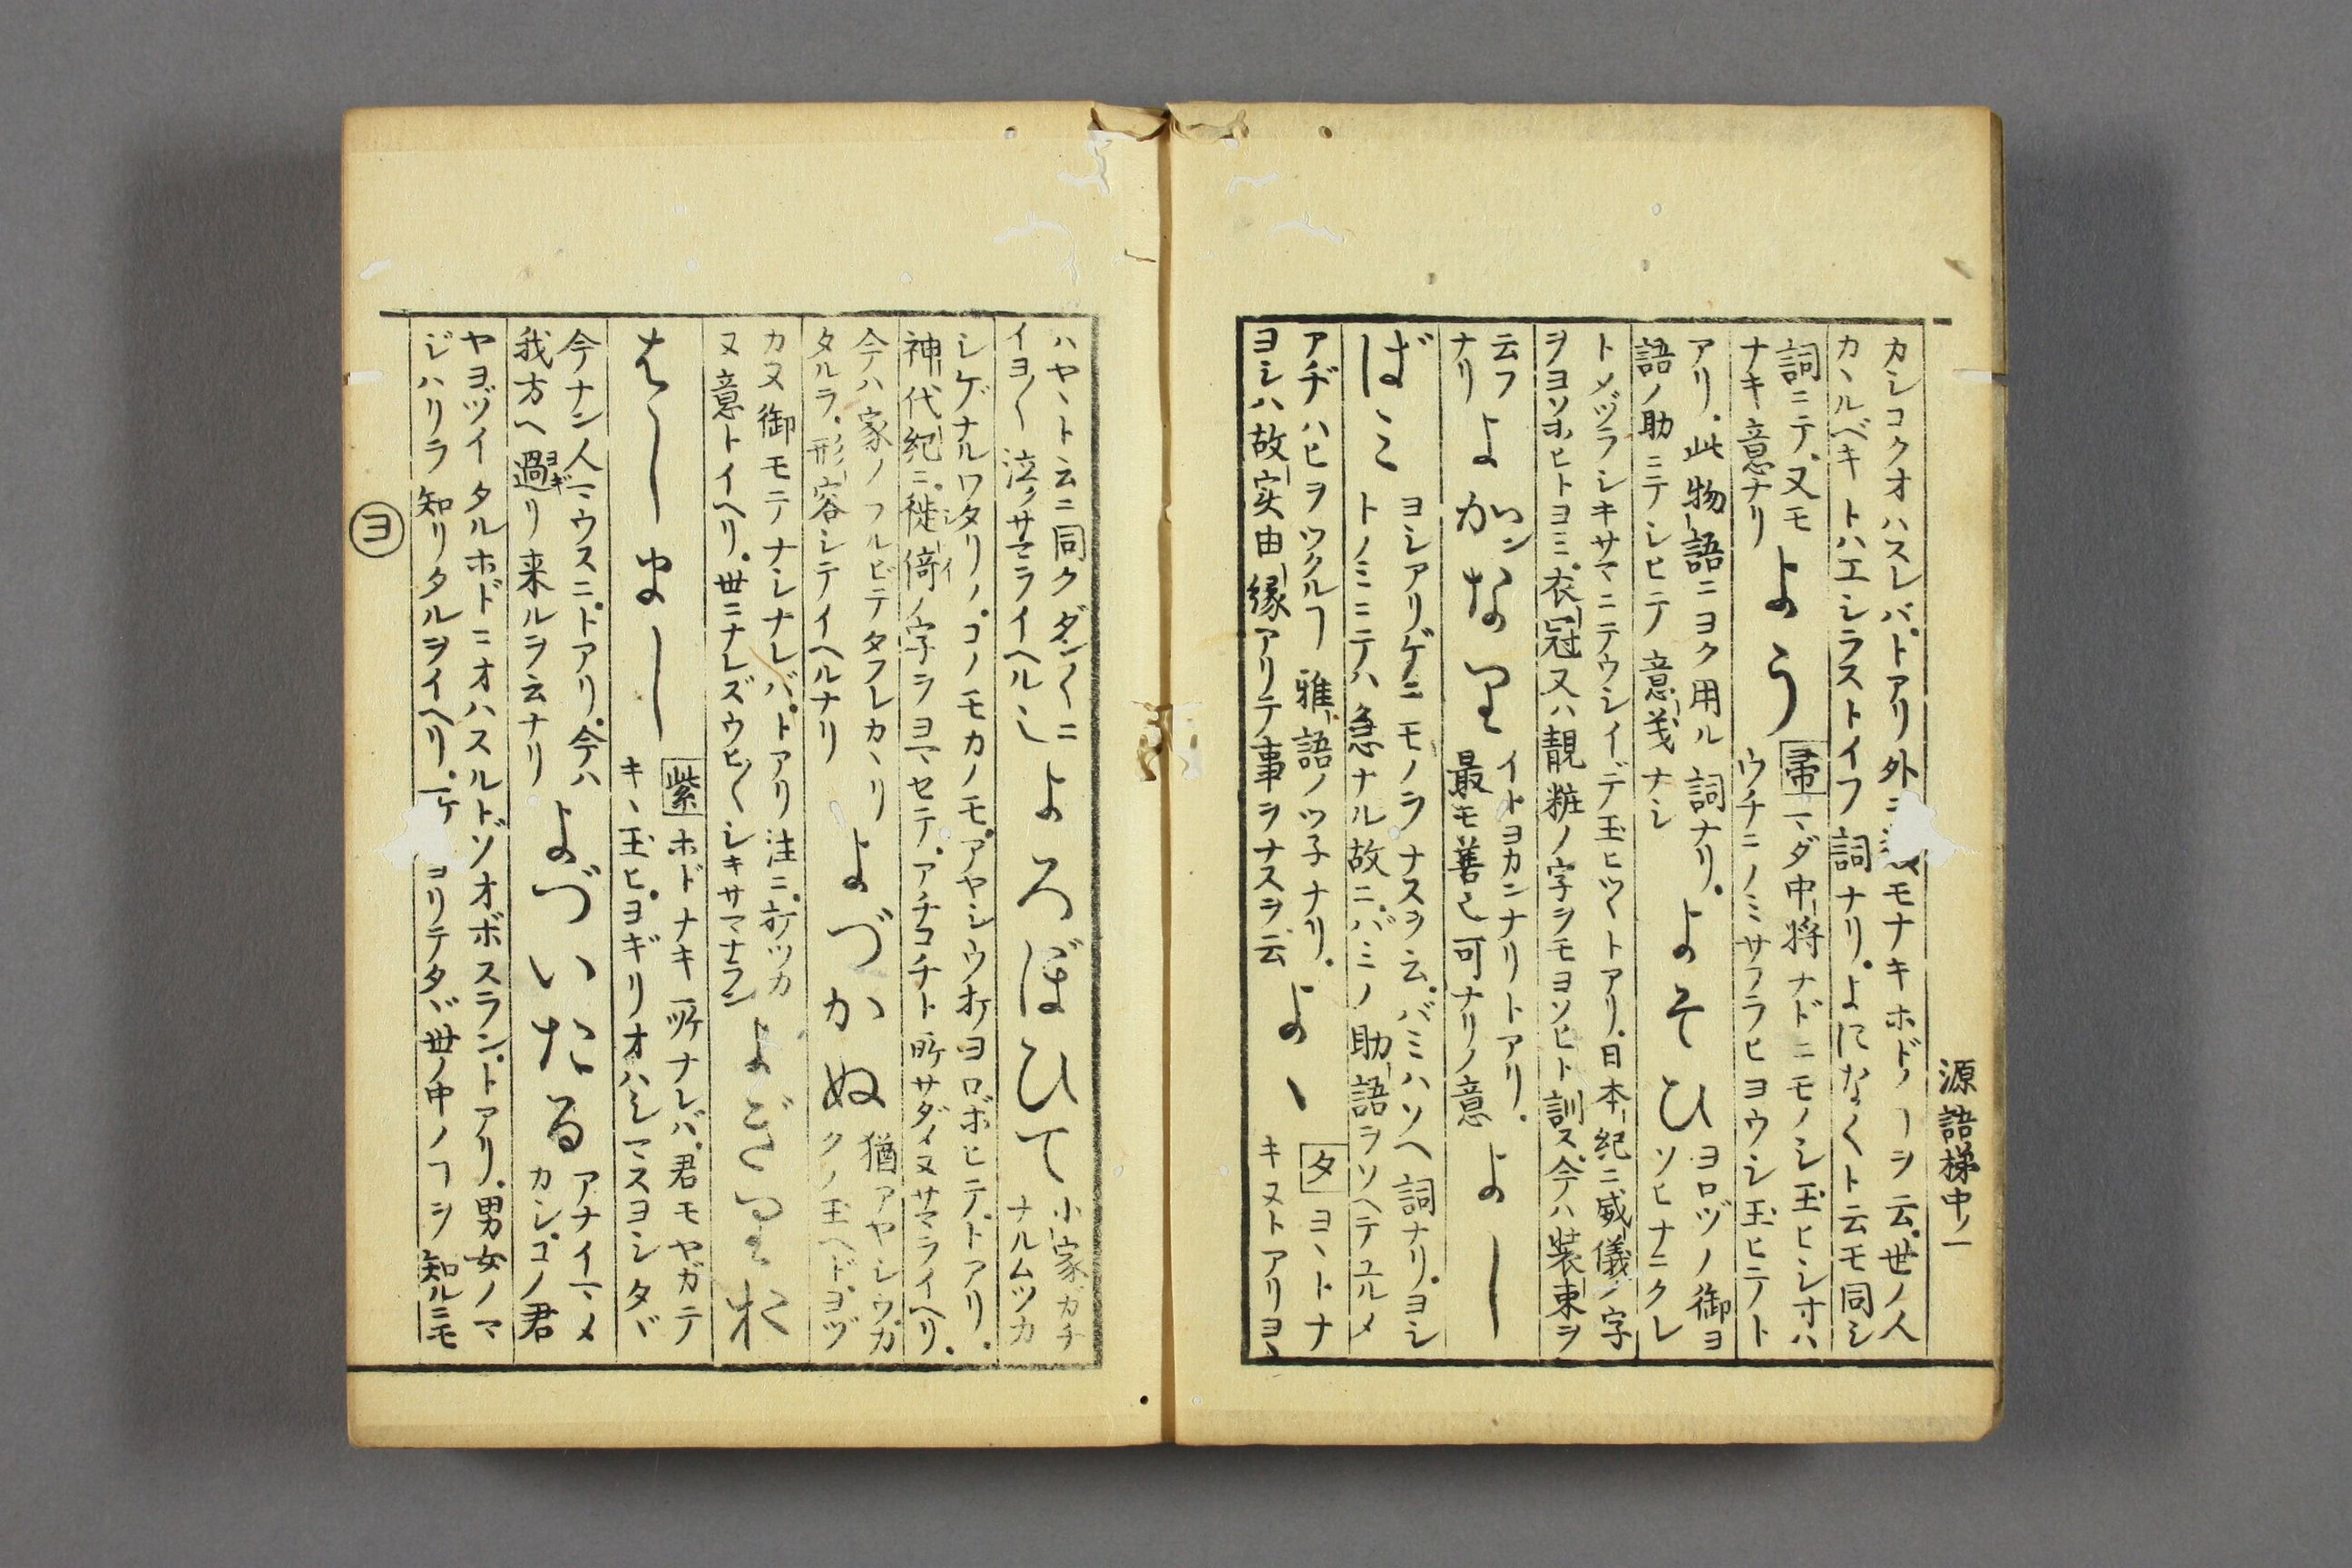 源語梯中ノ一
カシコクオハスレバ。トアリ外ニ
モナキホドノヿヲ云。世ノ人
カヽルベキトハエシラストイフ詞ナリ。よになくト云モ同シ
詞ニテ。又モ
ナキ意ナリ
よう
帚マダ中将ナドニモノシ玉ヒシオハ
ウチニノミサフラヒヨウシ玉ヒテト
アリ。此物語ニヨク用ル詞ナリ。
語ノ助ニテシヒテ意義ナシ
よそひ
ヨロヅノ御ヨ
ソヒナニクレ
トメヅラシキサマニテウシイデ玉ヒツヽトアリ。日本紀ニ威儀ノ字
ヲヨソホヒトヨミ。衣冠又ハ靚粧ノ字ヲモヨソヒト訓ス。今ハ装束ヲ
云フ
ナリ
よかンなり
イトヨカンナリトアリ。
最モ善シ可ナリノ意
よし
ばみ
ヨシアリゲニモノヲナスヲ云。バミハソヘ詞ナリ。ヨシ
トノミニテハ急ナル故ニ。バミノ助語ヲソヘテユルメ
アヂハヒヲツクルヿ雅語ノツ子ナリ。
ヨシハ故実由縁アリテ事ヲナスヲ云
よゝ
夕ヨヽトナ
キヌトアリヨヽ
ハヤヽト云ニ同クダン〳〵ニ
イヨ〳〵泣クサマヲイヘルし
よろぼひて
小家ガチ
ナルムツカ
シゲナルワタリノ。コノモカノモ。アヤシウオヨロボヒテ。トアリ。
神代紀ニ。徙倚ノ字ヲヨマセテ。アチコチト所サダメヌサマヲイヘリ。
今ハ家ノフルビテタフレカヽリ
タルヲ。形容シテイヘルナリ
よづかぬ
猶アヤシウカ
クノ玉ヘド。ヨヅ
カヌ御モテナシナレバ。トアリ注ニ。
又意トイヘリ。世ニナレズウヒ〳〵シキサマナラン
よぎりおはしましし
紫ホドナキ所ナレバ。君モヤガテ
キヽ玉ヒ。ヨギリオハシマスヨシタヾ
今ナン人マウスニ。トアリ。今ハ
我方ヘ過ヨギリ来ルヲ云ナリ
よづいたる
アナイマメ
カシ。コノ君
ヤヨヅイタルホドニオハスルトゾオボスラン。トアリ。男女ノマ
ジハリヲ知リタルヲイヘリ。
ヨリテタヾ世ノ中ノヿヲ知ルニモ
ヨ